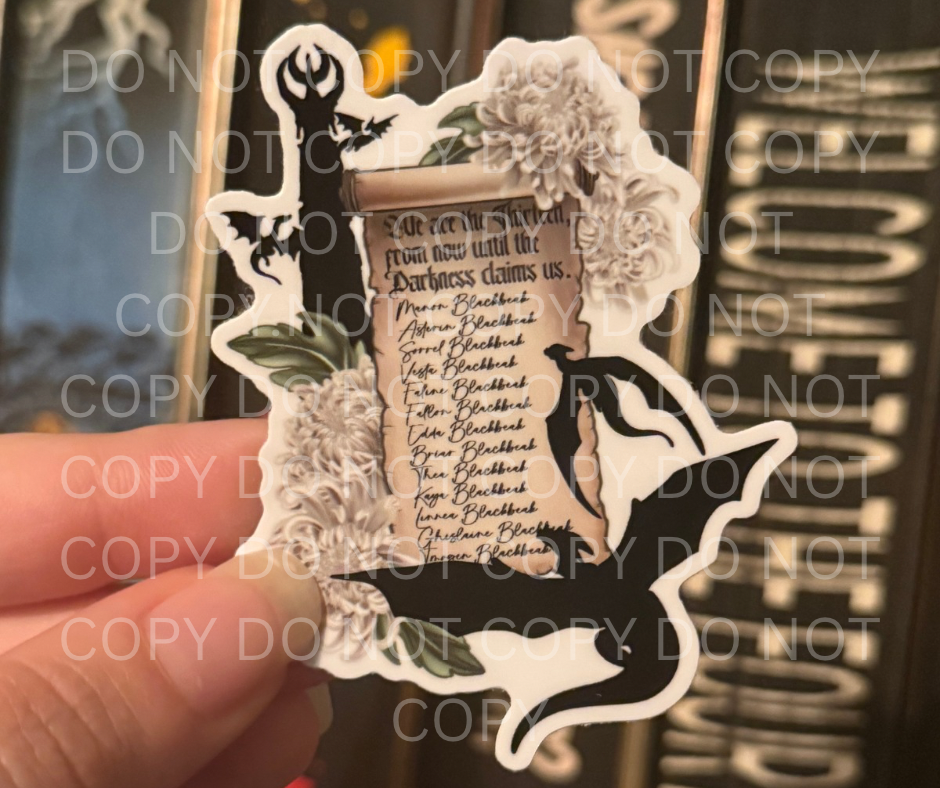 DO NOT COPY DO NOT COPY DO NOT COPY
DO NOT COPY DO NOT COPY DO NOT COPY
DO NOT COPY DO NOT COPY DO NOT
COPY DO NOT COPY DO NOT COPY
COPY DO NOT COPY DO NOT COPY DO NOT
COPY DO NOT COPY DO NOT COPY DO NOT
COPY DO NOT COPY DO NOT COPY DO NOT
COPY DO NOT COPY DO NOT COPY DO NOT
COPY
We are the Thirteen,
from now until the
Darkness claims us.
Manon Blackbeak
Asterin Blackbeak
Sorrel Blackbeak
Vesta Blackbeak
Faline Blackbeak
Fallon Blackbeak
Edda Blackbeak
Briar Blackbeak
Thea Blackbeak
Kaya Blackbeak
Linnea Blackbeak
Ghislaine Blackbeak
Imogen Blackbeak
WELCOME TO THE